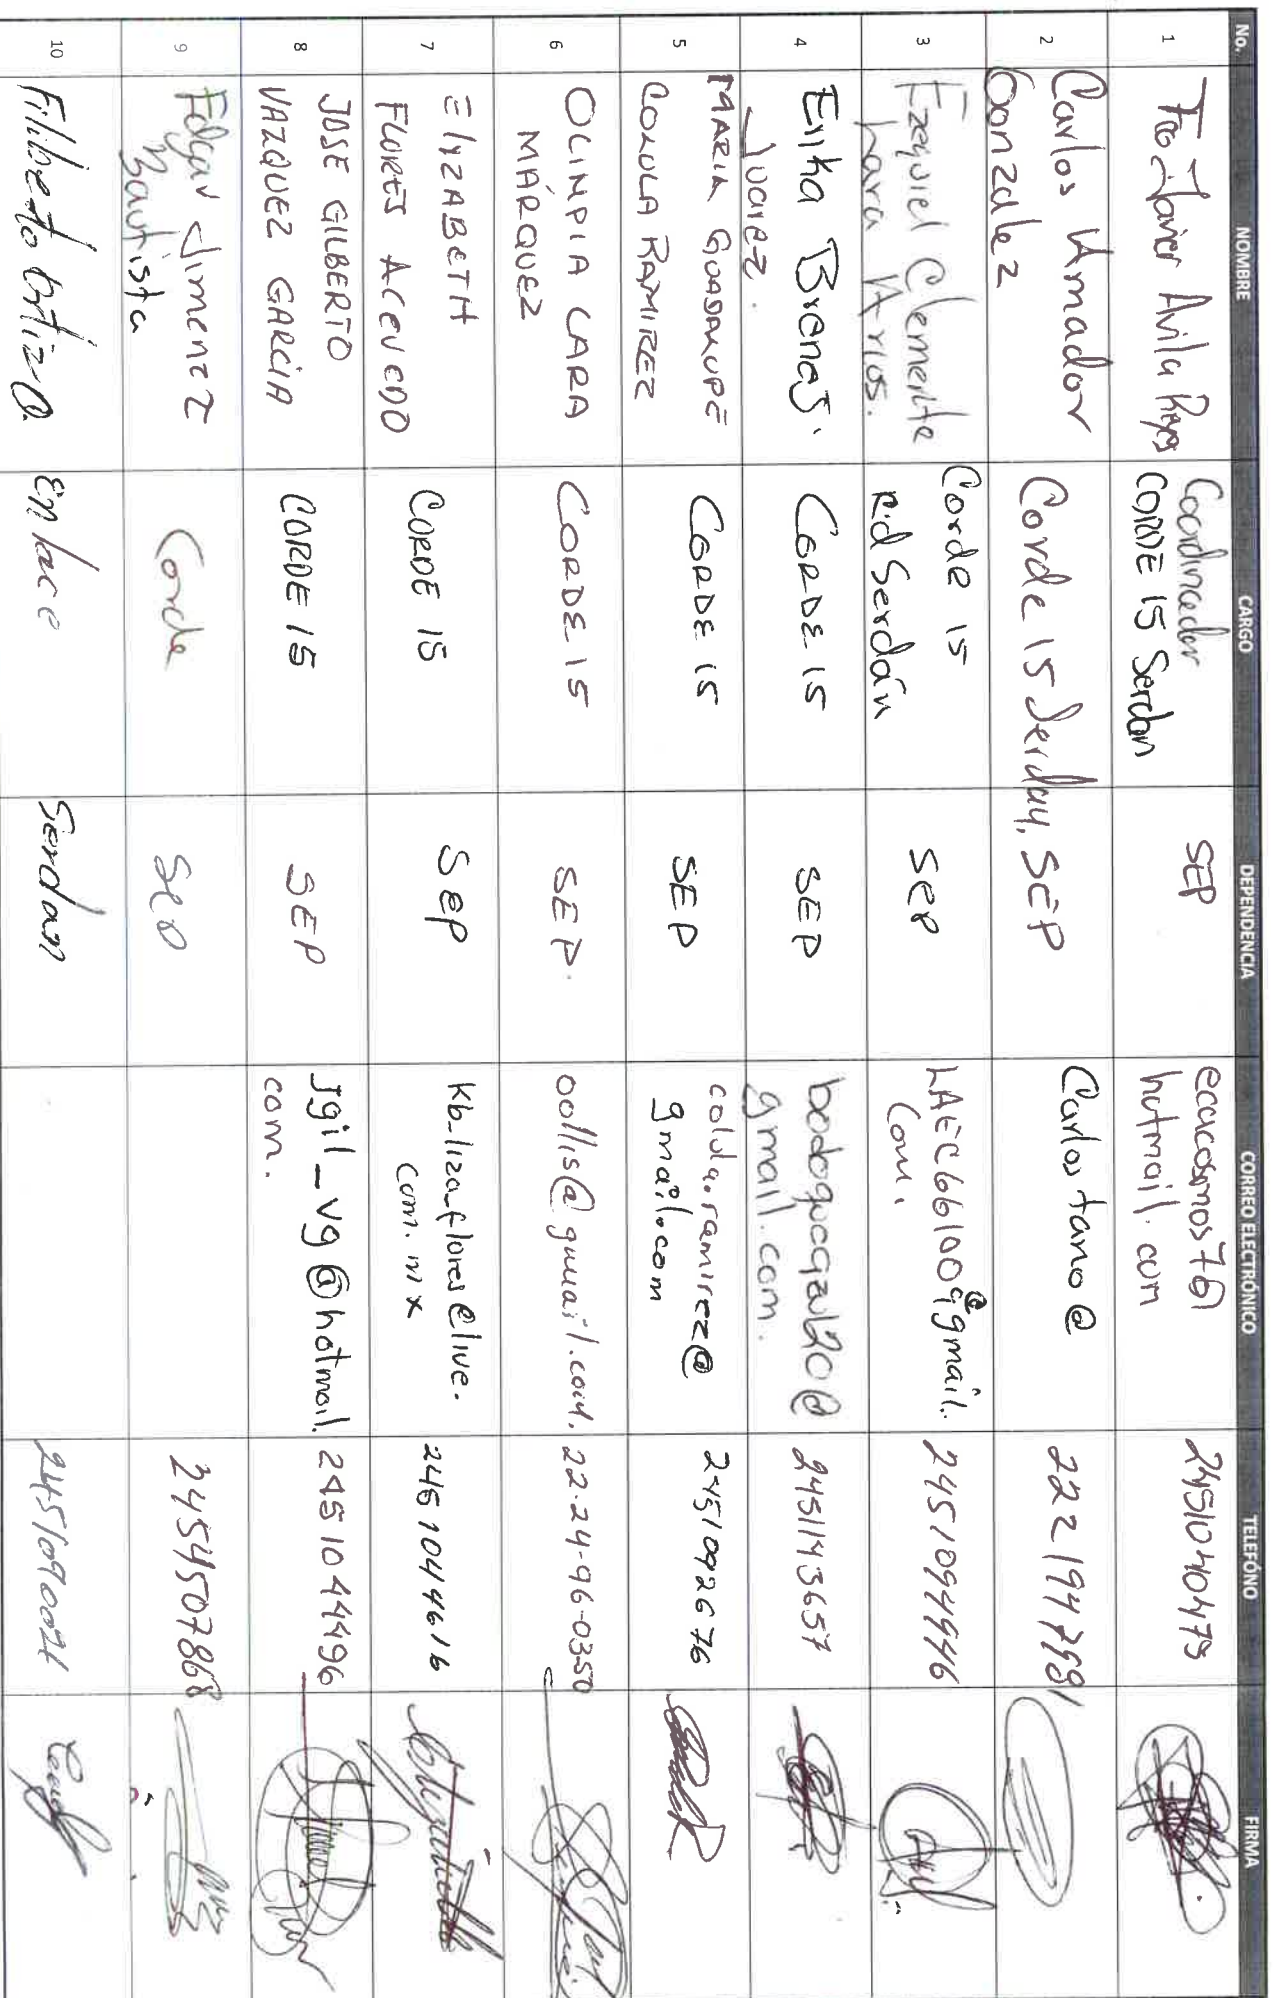 No. NOMBRE CARGO DEPENDENCIA CORREO ELECTRÓNICO TELEFÓNO FIRMA
1
Fco Javier Avila Reyes
Coordinador
CORDE 15 Serdan
SEP
hotmail.com
2
Carlos Amador
Gonzalez
Corde 15 Serdan, SEP
Carlos tano@
3
Ezequiel Clemente
Lara Arios.
Corde 15
Rid Serdán
SEP
LAEC661009@gmail.
Com.
4
Erika
Juarez.
CORDE 15
SEP
gmail.com.
2451143657
5
MARIA GUADALUPE
COLULA RAMIREZ
CORDE 15
SEP
colula.ramirez@
gmail.com
2451092676
6
OLINPIA LARA
MÁRQUEZ
CORDE 15
SEP.
oollis@gmail.com.
22-24-96-0350
7
ElyZABETH
FLORES ACEVEDO
CORDE 15
SEP
kb-liza_flores@live.
com.mx
2451044616
8
JOSE GILBERTO
VAZQUEZ GARCIA
CORDE 15
SEP
Jgil_vg@hotmail.
com.
2451044496
9
Edgar Jimenez
Bautista
Corde
SEP
2454507868
10
Filiberto Ortiz O.
Enlace
Serdan